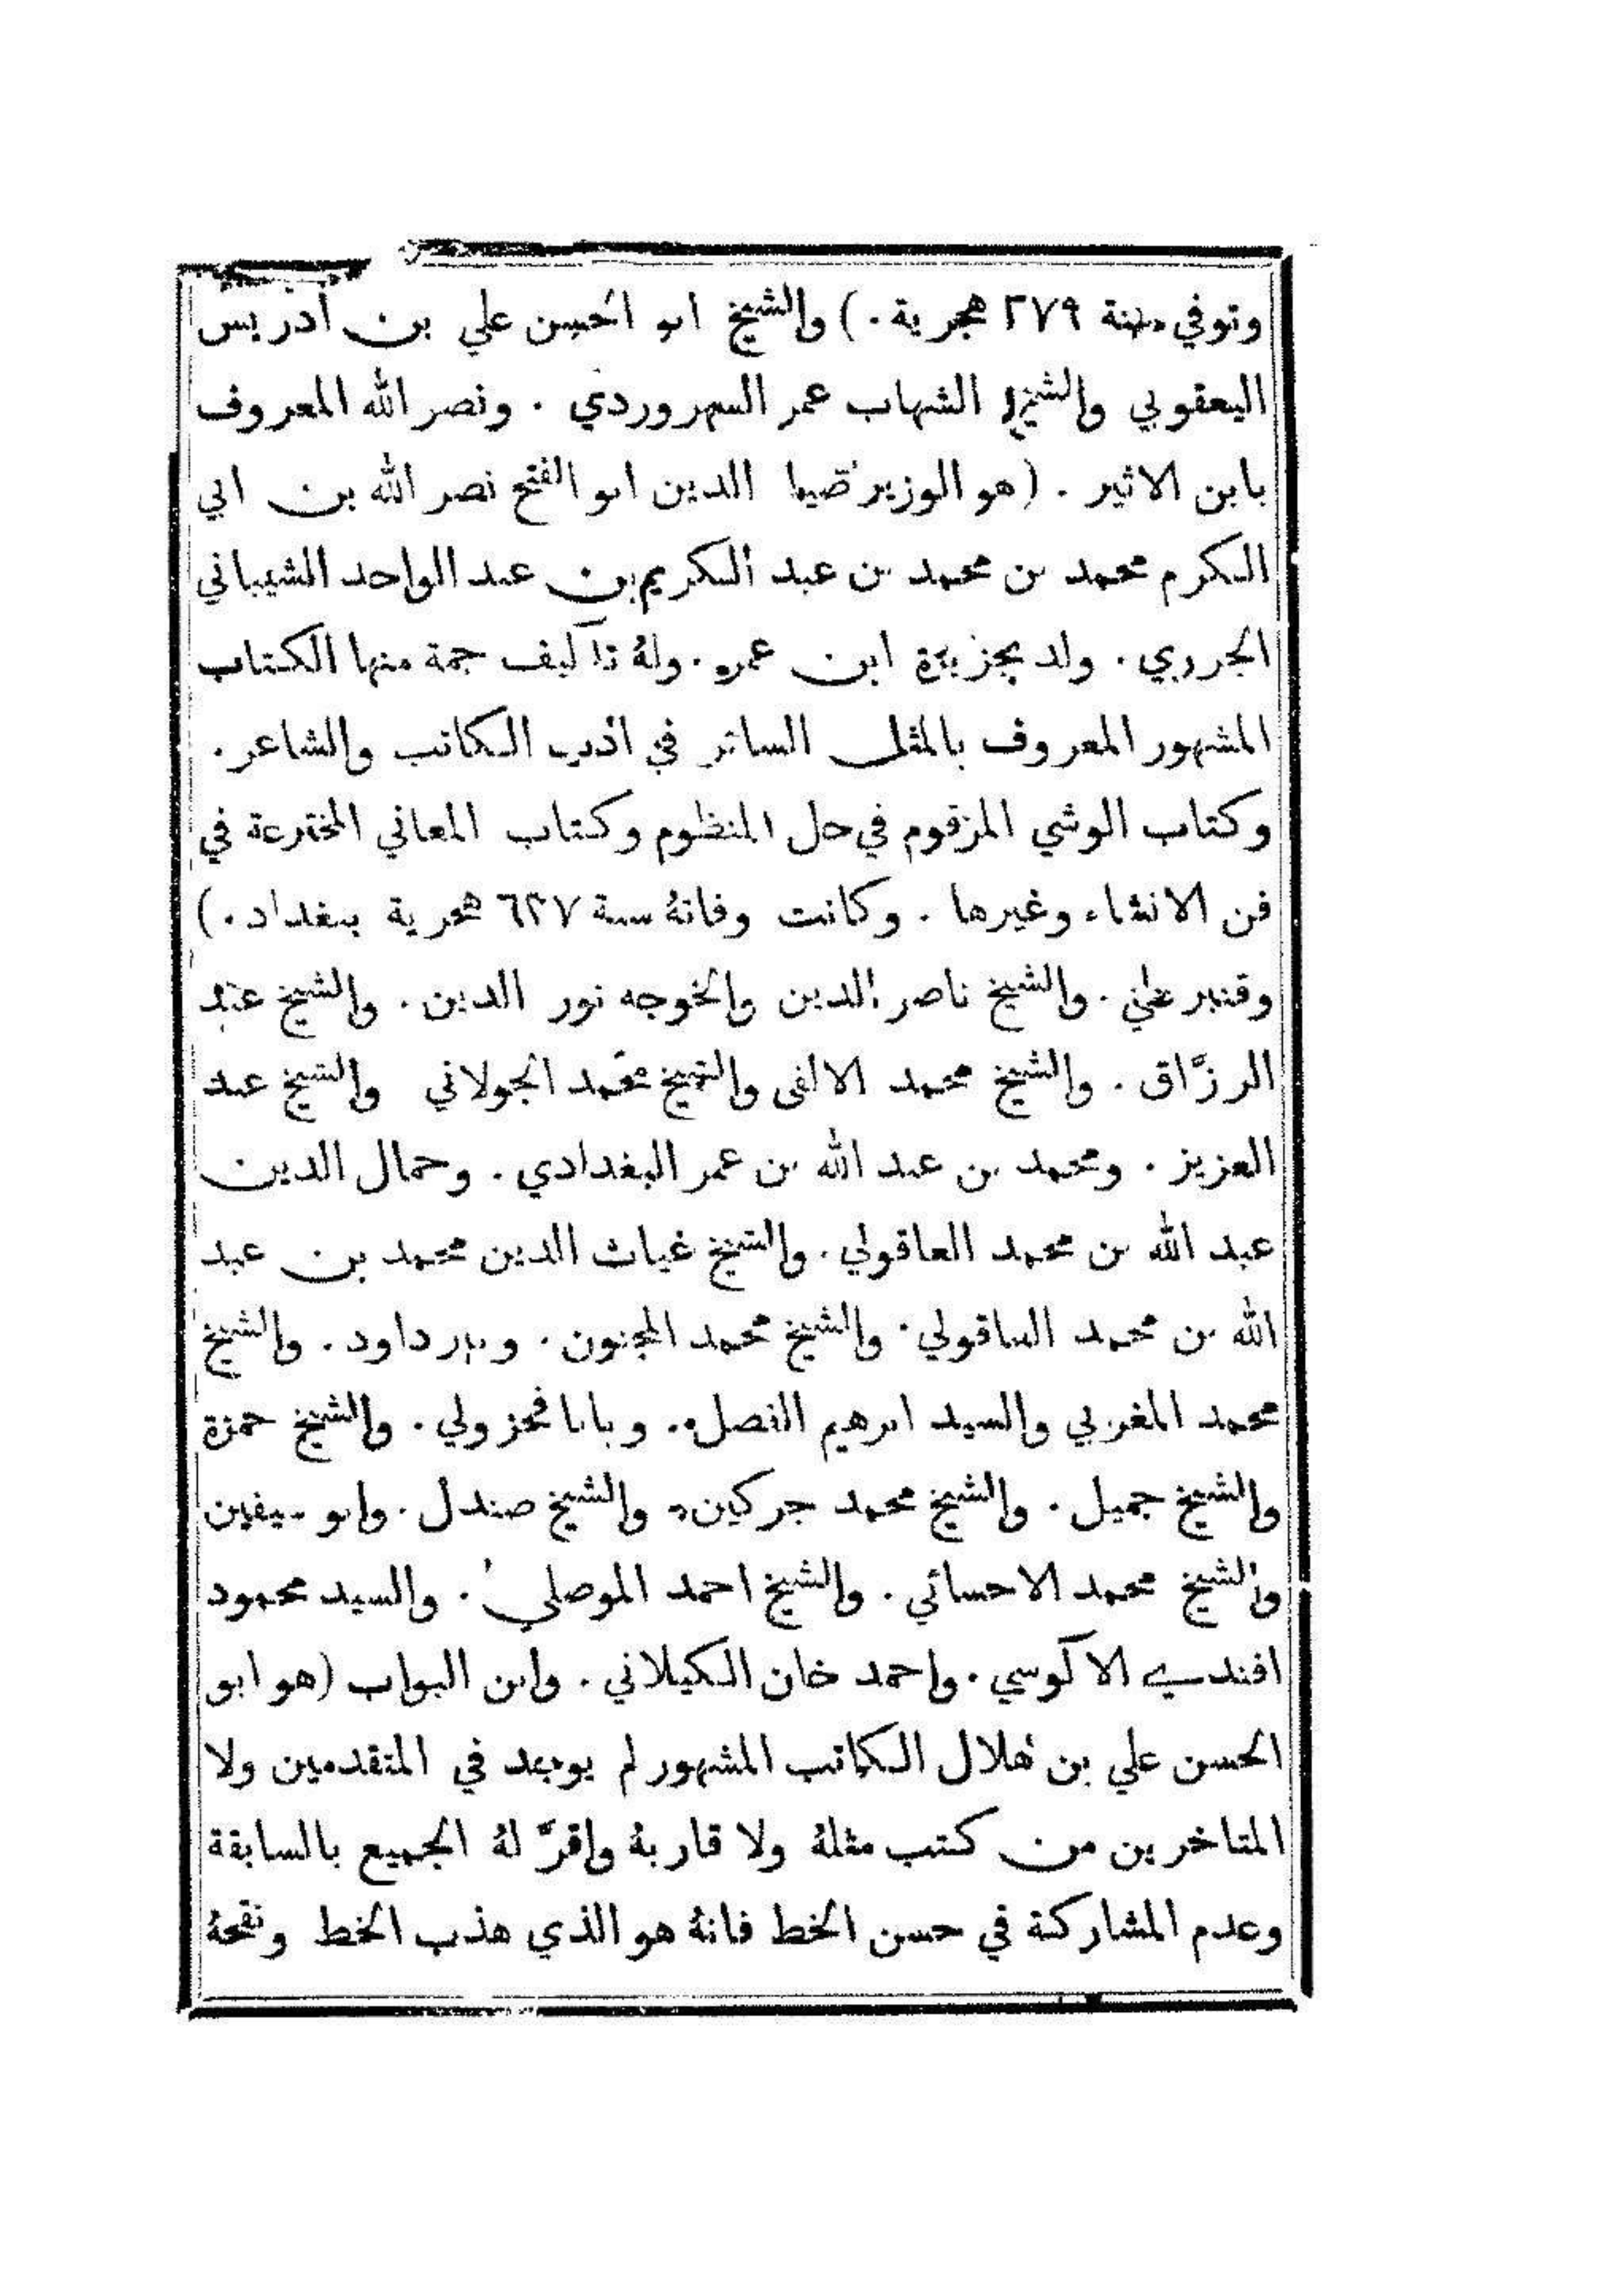 وتوفي سنة ٢٧٩ هجرية .) والشيخ ابو الحسن علي بن ادريس
اليعقوبي والشيخ الشهاب عمر السهروردي . ونصر الله المعروف
بابن الاثير . (هو الوزير ضيا الدين ابو الفتح نصر الله بن ابي
الكرم محمد بن محمد بن عبد الكريم بن عبد الواحد الشيباني
الجزري . ولد بجزيرة ابن عمرو . ولهُ تآليف جمة منها الكتاب
المشهور المعروف بالمثل السائر في ادب الكاتب والشاعر .
وكتاب الوشي المرقوم في حل المنظوم وكتاب المعاني المخترعة في
فن الانشاء وغيرها . وكانت وفاتهُ سنة ٦٣٧ هجرية ببغداد .)
وقنبر علي . والشيخ ناصر الدين والخوجه نور الدين . والشيخ عبد
الرزَّاق . والشيخ محمد الالفى والشيخ محمد الجولاني والشيخ عبد
العزيز . ومحمد بن عبد الله بن عمر البغدادي . وجمال الدين
عبد الله بن محمد العاقولي . والشيخ غياث الدين محمد بن عبد
الله بن محمد العاقولي . والشيخ محمد المجنون . وپير داود . والشيخ
محمد المغربي والسيد ابرهيم الفضل . وبابا . والشيخ حمزة
والشيخ جميل . والشيخ محمد جركين . والشيخ صندل . وابو سيفين
والشيخ محمد الاحسائي . والشيخ احمد الموصلي . والسيد محمود
افندي الآلوسي . واحمد خان الكيلاني . وابن البواب (هو ابو
الحسن علي بن هلال الكاتب المشهور لم يوجد في المتقدمين ولا
المتاخرين من كتب مثلهُ ولا قاربهُ واقرَّ لهُ الجميع بالسابقة
وعدم المشاركة في حسن الخط فانهُ هو الذي هذب الخط ونقحهُ